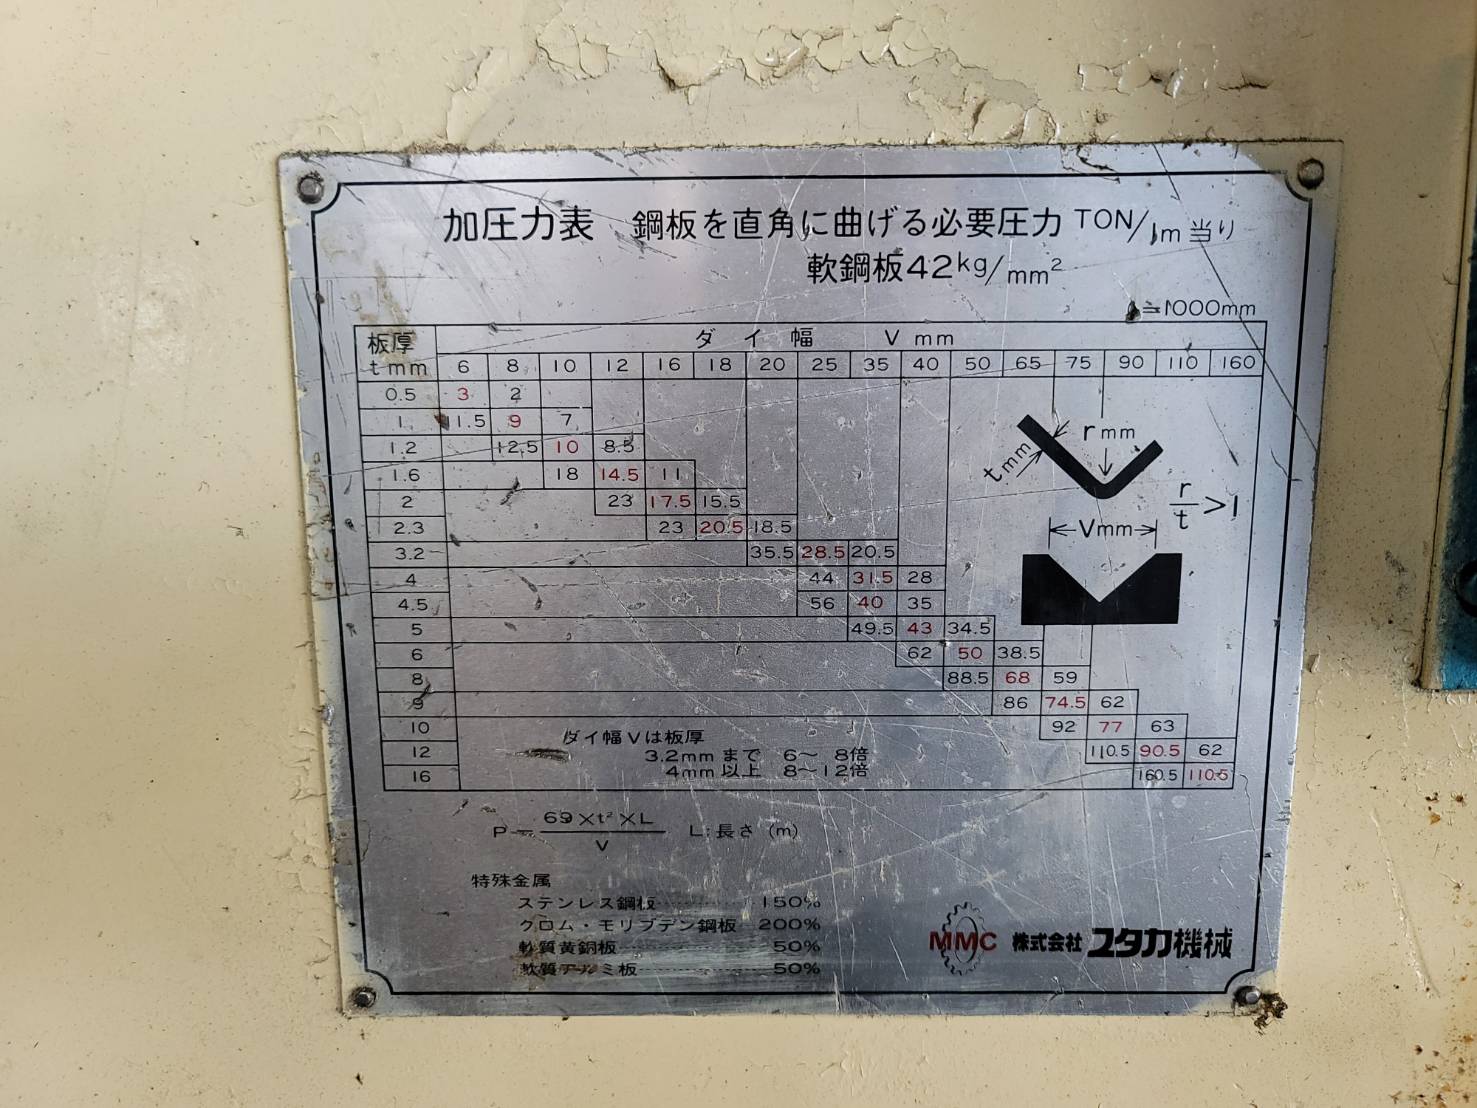 加圧力表 鋼板を直角に曲げる必要圧力 TON/1m当り
軟鋼板42kg/mm²
≒1000mm
板厚 ダイ幅 V mm
t mm 6 8 10 12 16 18 20 25 35 40 50 65 75 90 110 160
0.5 3 2
1 11.5 9 7
1.2 12.5 10 8.5
1.6 18 14.5 11
2 23 17.5 15.5
2.3 23 20.5 18.5
3.2 35.5 28.5 20.5
4 44 31.5 28
4.5 56 40 35
5 49.5 43 34.5
6 62 50 38.5
8 88.5 68 59
9 86 74.5 62
10 92 77 63
12 110.5 90.5 62
16 160.5 110.5
r mm
t mm
r/t >1
Vmm
ダイ幅Vは板厚
3.2mmまで 6〜8倍
4mm以上 8〜12倍
P= 69×t²×L / V L:長さ (m)
特殊金属
ステンレス鋼板 150%
クロム・モリブデン鋼板 200%
軟質黄銅板 50%
軟質アルミ板 50%
MMC 株式会社 ユタカ機械